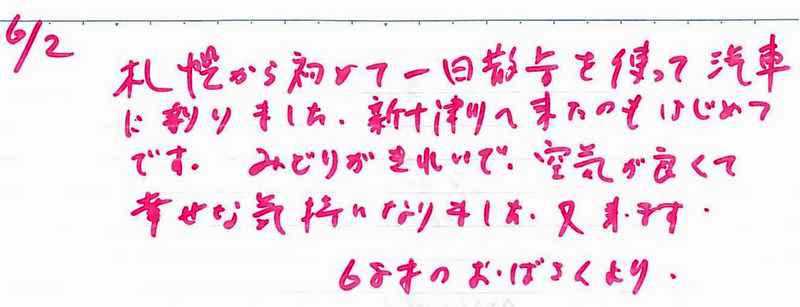 6/2
札幌から初めて一日散歩を使って汽車
に乗りました。新十津川へ来たのもはじめて
です。みどりがきれいで、空気が良くて
幸せな気持になりました。又来ます。
才のおばさんより。